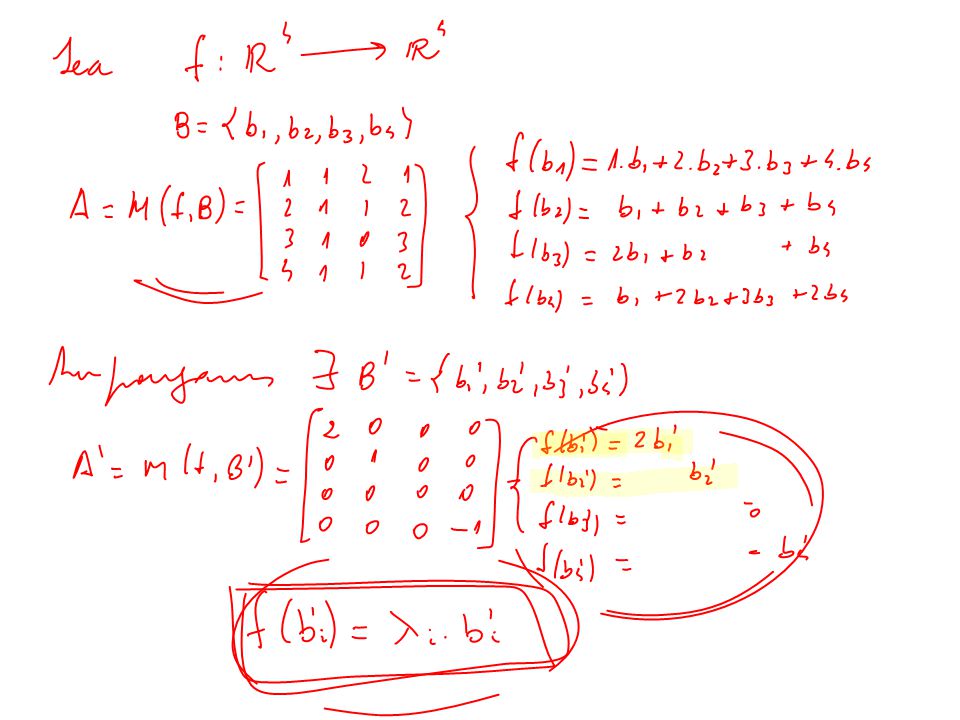 Sea f: ℝ⁴ → ℝ⁴
B = {b₁, b₂, b₃, b₄}
A = M(f,B) = [1 1 2 1
2 1 1 2
3 1 0 3
4 1 1 2]
f(b₁) = 1.b₁ + 2.b₂ + 3.b₃ + 4.b₄
f(b₂) = b₁ + b₂ + b₃ + b₄
f(b₃) = 2b₁ + b₂ + b₄
f(b₄) = b₁ + 2b₂ + 3b₃ + 2b₄
Supongamos ∃ B' = {b₁', b₂', b₃', b₄'}
A' = M(f,B') = [2 0 0 0
0 1 0 0
0 0 0 0
0 0 0 -1]
f(b₁') = 2b₁'
f(b₂') = b₂'
f(b₃') = 0
f(b₄') = - b₄'
f(b'ᵢ) = λᵢ. b'ᵢ